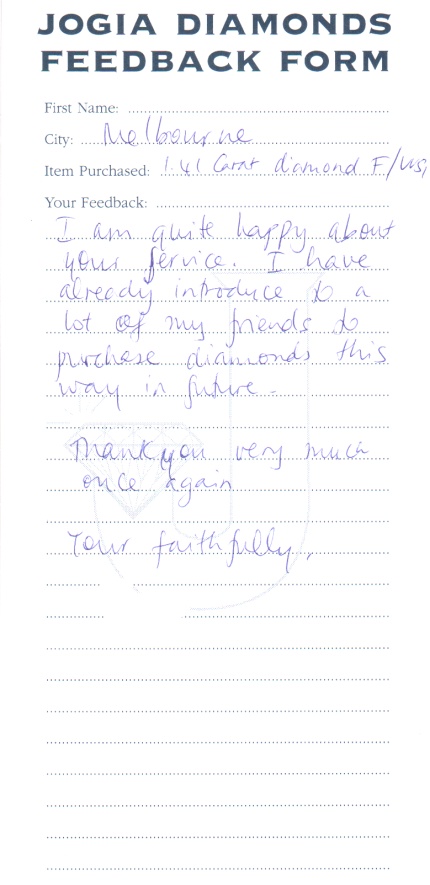 JOGIA DIAMONDS
FEEDBACK FORM
First Name:
City: Melbourne
Item Purchased: 1.41 Carat diamond F/VVS,
Your Feedback:
I am quite happy about
your service. I have
already introduce to a
lot of my friends to
purchase diamonds this
way in future.
Thank you very much
once again
Your faithfully,